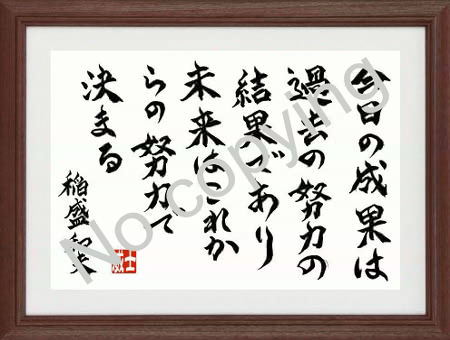 今日の成果は
過去の努力の
結果であり
未来はこれか
らの努力で
決まる
稲盛和夫
No copying